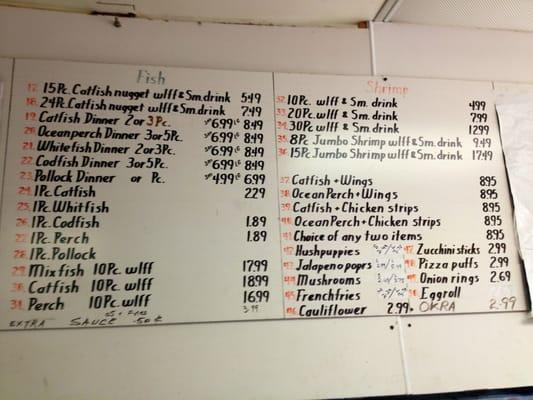 Fish
17. 15Pc. Catfish nugget w/ff & Sm.drink 5.49
18. 24Pc. Catfish nugget w/ff & Sm.drink 7.49
19. Catfish Dinner 2 or 3Pc. 6.99 8.49
20. Oceanperch Dinner 3or5Pc. 6.99 8.49
21. Whitefish Dinner 2or3Pc. 6.99 8.49
22. Codfish Dinner 3or5Pc. 6.99 8.49
23. Pollock Dinner or Pc. 4.99 6.99
24. 1Pc. Catfish 2.29
25. 1Pc. Whitfish
26. 1Pc. Codfish 1.89
27. 1Pc. Perch 1.89
28. 1Pc. Pollock
29. Mixfish 10Pc. w/ff 17.99
30. Catfish 10Pc. w/ff 18.99
31. Perch 10Pc. w/ff 16.99
3.99
EXTRA SAUCE .50¢
Shrimp
32. 10Pc. w/ff & Sm. drink 4.99
33. 20Pc. w/ff & Sm. drink 7.99
34. 30Pc. w/ff & Sm. drink 12.99
35. 8Pc Jumbo Shrimp w/ff & Sm. drink 9.49
36. 15Pc Jumbo Shrimp w/ff & Sm. drink 17.49
37. Catfish + Wings 8.95
38. Ocean Perch + Wings 8.95
39. Catfish + Chicken strips 8.95
40. Ocean Perch + Chicken strips 8.95
41. Choice of any two items 8.95
42. Hushpuppies
43. Jalapeno poprs
44. Mushrooms
45. Frenchfries
46. Cauliflower 2.99
47. Zucchini sticks 2.99
48. Pizza puffs 2.99
49. Onion rings 2.69
50. Eggroll
OKRA 2.99